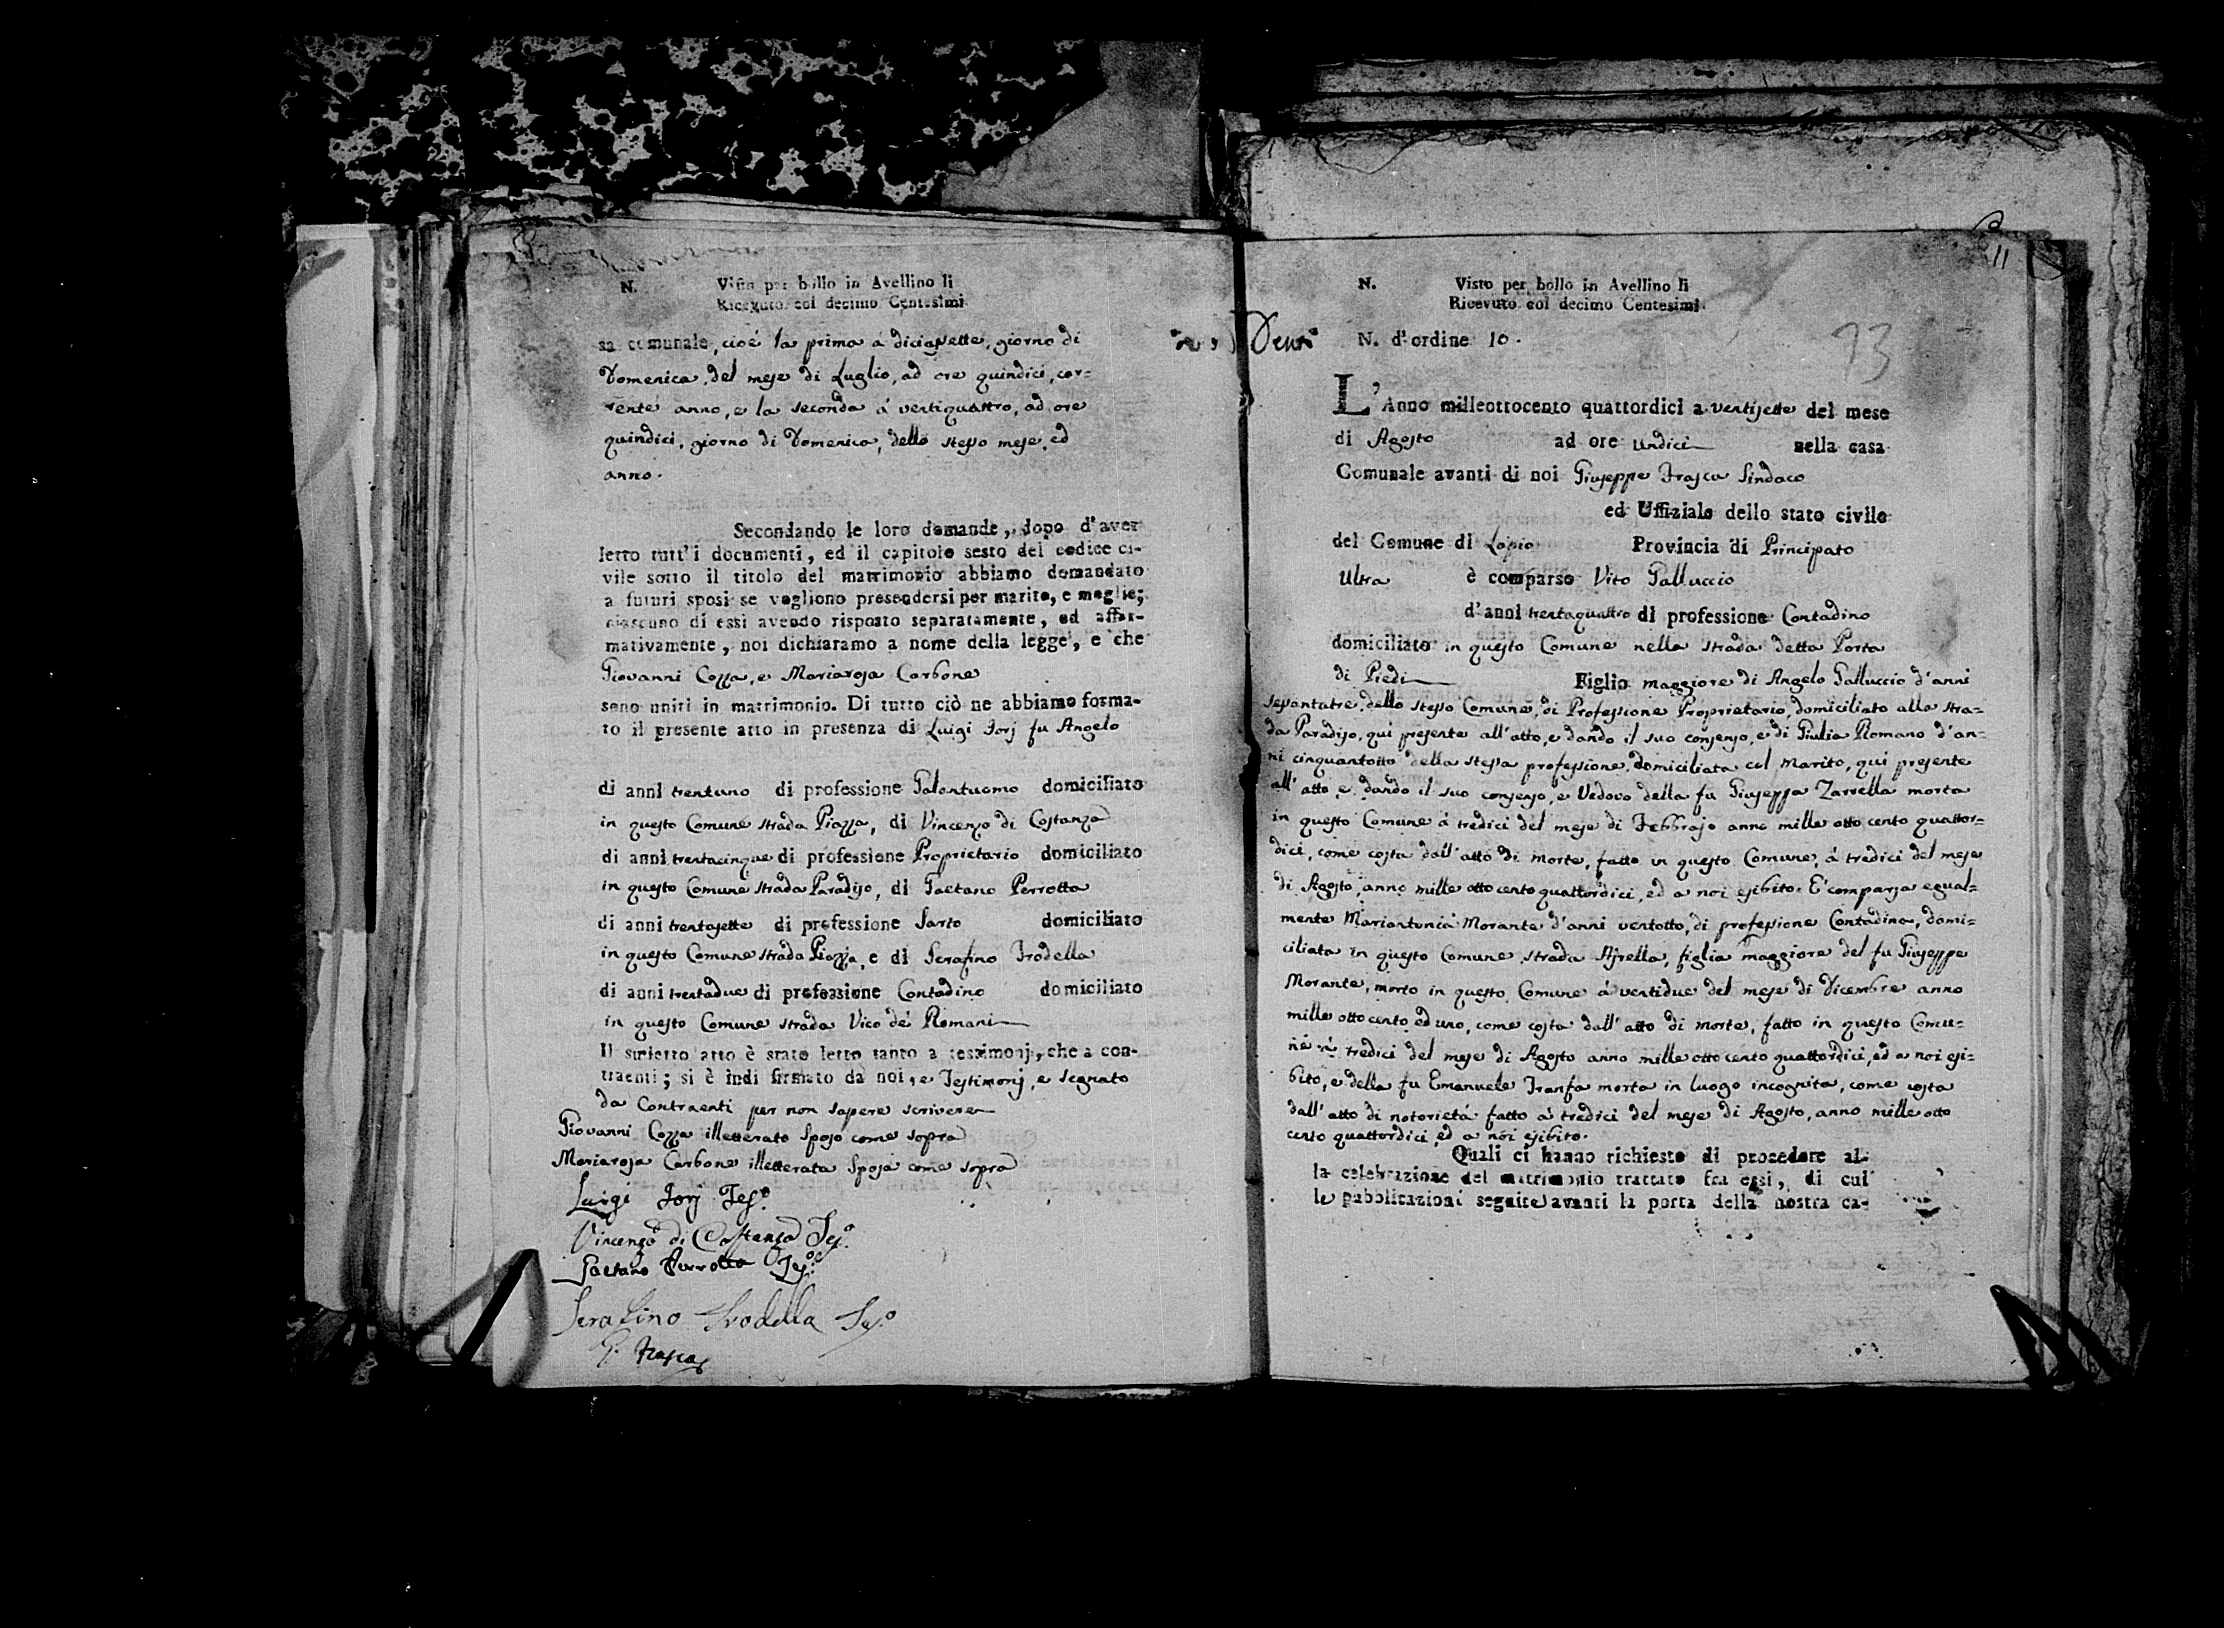 N. Visto per bollo in Avellino li
Ricevuto col decimo Centesimi
sa comunale, cioè la prima a diciasette, giorno di
Domenica, del mese di Luglio, ad ore quindici, cor=
rente anno, e la seconda à ventiquattro, ad ore
quindici, giorno di Domenica, dello stesso mese, ed
anno.
Secondando le loro domande, dopo d'aver
letto tutt'i documenti, ed il capitolo sesto del codice ci-
vile sotto il titolo del matrimonio abbiamo domandato
a futuri sposi se vogliono presendersi per marito, e moglie;
ciascuno di essi avendo risposto separatamente, ed affer-
mativamente, noi dichiaramo a nome della legge, e che
Giovanni Cozza, e Mariarosa Carbone
sono uniti in matrimonio. Di tutto ciò ne abbiamo forma-
to il presente atto in presenza di Luigi Iorj fu Angelo
di anni trentuno di professione Galantuomo domiciliato
in questo Comune strada Piazza, di Vincenzo di Costanza
di anni trentacinque di professione Proprietario domiciliato
in questo Comune strada Paradiso, di Gaetano Perrotta
di anni trentasette di professione Sarto domiciliato
in questo Comune strada Piazza, e di Serafino Trodella
di anni trentadue di professione Contadino domiciliato
in questo Comune strada Vico dè Romani
Il suddetto atto è stato letto tanto a testimonj, che a con-
traenti; si è indi firmato da noi, e Testimonj, e segnato
da Contraenti per non sapere scrivere
Giovanni Cozza illetterato Sposo come sopra
Mariarosa Carbone illetterata Sposa come sopra
Luigi Iorj Tes.º
Vincenzo di Costanza Tes.º
Gaetano Perrotta Tes.º
Serafino Trodella Tes.º
G. Frasca
11
N. Visto per bollo in Avellino li
Ricevuto col decimo Centesimi
N. d'ordine 10.
L'Anno milleottocento quattordici a ventisette del mese
di Agosto ad ore undici nella casa
Comunale avanti di noi Giuseppe Frasca Sindaco
ed Uffiziale dello stato civile
del Comune di Lapio Provincia di Principato
Ultra è comparso Vito Galluccio
d'anni trentaquattro di professione Contadino
domiciliato in questo Comune nella strada detta Porta
di Piedi Figlio maggiore di Angelo Galluccio d'anni
sessantatre, dello stesso Comune, di Professione Proprietario, domiciliato alla stra=
da Paradiso, qui presente all'atto, e dando il suo consenso, e di Giulia Romano d'an=
ni cinquantotto della stessa professione, domiciliata col marito, qui presente
all'atto, e dando il suo consenso, e Vedovo della fu Giuseppa Zarrella morta
in questo Comune à tredici del mese di Febbrajo anno mille otto cento quattor=
dici, come costa dall'atto di morte, fatto in questo Comune, à tredici del mese
di Agosto, anno mille otto cento quattordici, ed a noi esibito. È comparsa egual=
mente Mariantonia Morante d'anni ventotto, di professione Contadina, domi=
ciliata in questo Comune strada Ajrella, figlia maggiore del fu Giuseppe
Morante, morto in questo Comune à ventidue del mese di Dicembre anno
mille otto cento ed uno, come costa dall'atto di morte, fatto in questo Comu=
ne à tredici del mese di Agosto anno mille otto cento quattordici, ed a noi esi=
bito, e della fu Emanuele Tranfa morta in luogo incognito, come costa
dall'atto di notorietà fatto à tredici del mese di Agosto, anno mille otto
cento quattordici, ed a noi esibito.
Quali ci hanno richiesto di procedere al-
la celebrazione del matrimonio trattato fra essi, di cui
le pubblicazioni seguite avanti la porta della nostra ca-